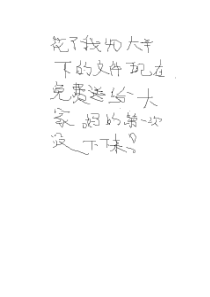 花了我如大半
下的文件现在
免费送给大
家妈的第一次
没下下来？